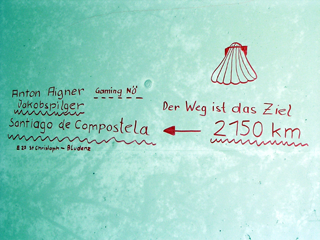 Anton Aigner Gaming NÖ
Jakobspilger
Der Weg ist das Ziel
Santiago de Compostela 2150 km
St Christoph - Bludenz